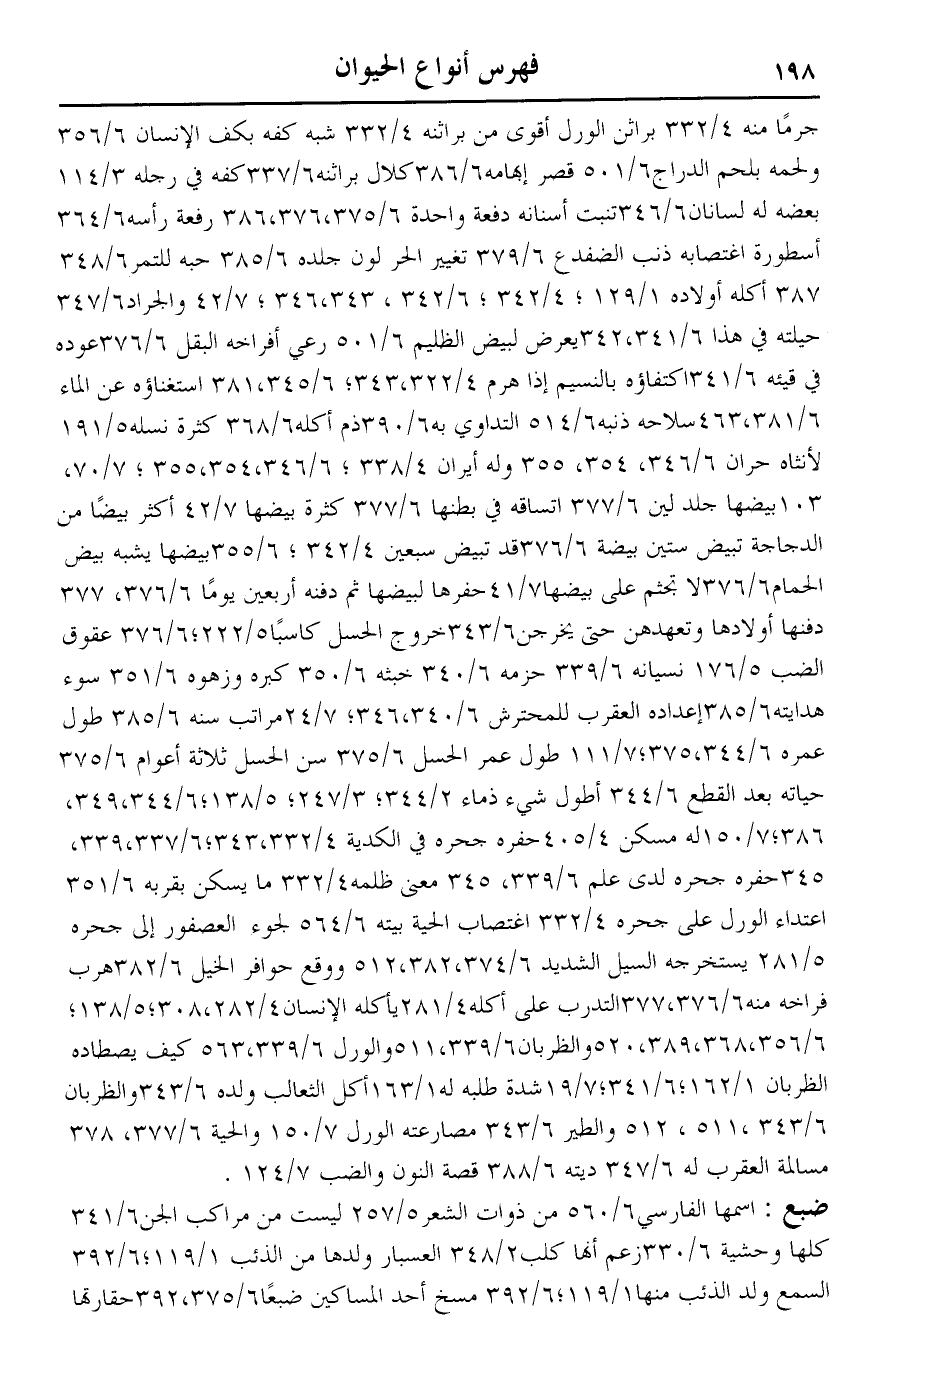 ١٩٨ فهرس أنواع الحيوان
جرمًا منه ٣٣٢/٤ براثن الورل أقوى من براثنه ٣٣٢/٤ شبه كفه بكف الإنسان ٣٥٦/٦
ولحمه بلحم الدراج٥٠١/٦ قصر إبهامه٣٨٦/٦كلال براثنه٣٣٧/٦كفه في رجله ١١٤/٣
بعضه له لسانان٣٤٦/٦تنبت أسنانه دفعة واحدة ٣٨٦،٣٧٦،٣٧٥/٦ رفعة رأسه٣٦٤/٦
أسطورة اغتصابه ذنب الضفدع ٣٧٩/٦ تغيير الحر لون جلده ٣٨٥/٦ حبه للتمر٣٤٨/٦
٣٨٧ أكله أولاده ١٢٩/١ ؛ ٣٤٢/٤ ؛ ٣٤٢/٦ ، ٣٤٦،٣٤٣ ؛ ٤٢/٧ والجراد٣٤٧/٦
حيلته في هذا ٣٤٢،٣٤١/٦يعرض لبيض الظليم ٥٠١/٦ رعي أفراخه البقل ٣٧٦/٦عوده
في قيئه ٣٤١/٦اكتفاؤه بالنسيم إذا هرم ٣٤٣،٣٢٢/٤؛ ٣٨١،٣٤٥/٦ استغناؤه عن الماء
٤٦٣،٣٨١/٦سلاحه ذنبه٥١٤/٦ التداوي به٣٩٠/٦ذم أكله٣٦٨/٦ كثرة نسله١٩١/٥
لأنثاه حران ٣٤٦/٦، ٣٥٤، ٣٥٥ وله أيران ٣٣٨/٤ ؛ ٣٥٥،٣٥٤،٣٤٦/٦ ؛ ٧٠/٧،
١٠٣بيضها جلد لين ٣٧٧/٦ اتساقه في بطنها ٣٧٧/٦ كثرة بيضها ٤٢/٧ أكثر بيضًا من
الدجاجة تبيض ستين بيضة ٣٧٦/٦قد تبيض سبعين ٣٤٢/٤ ؛ ٣٥٥/٦بيضها يشبه بيض
الحمام٣٧٦/٦لا تجثم على بيضها٤١/٧حفرها لبيضها ثم دفنه أربعين يومًا ٣٧٦/٦، ٣٧٧
دفنها أولادها وتعهدهن حتى يخرجن٣٤٣/٦خروج الحسل كاسبًا٢٢٢/٥؛٣٧٦/٦ عقوق
الضب ١٧٦/٥ نسيانه ٣٣٩/٦ حزمه ٣٤٠/٦ خبثه ٣٥٠/٦ كبره وزهوه ٣٥١/٦ سوء
هدايته٣٨٥/٦إعداده العقرب للمحترش ٣٤٦،٣٤٠/٦؛ ٢٤/٧مراتب سنه ٣٨٥/٦ طول
عمره ٣٧٥،٣٤٤/٦؛١١١/٧ طول عمر الحسل ٣٧٥/٦ سن الحسل ثلاثة أعوام ٣٧٥/٦
حياته بعد القطع ٣٤٤/٦ أطول شيء ذماء ٣٤٤/٢؛ ٢٤٧/٣؛ ١٣٨/٥؛٣٤٩،٣٤٤/٦،
٣٨٦؛١٥٠/٧له مسكن ٤٠٥/٤حفره جحره في الكدية ٣٤٣،٣٣٢/٤؛٣٣٩،٣٣٧/٦،
٣٤٥حفره جحره لدى علم ٣٣٩/٦، ٣٤٥ معنى ظلمه٣٣٢/٤ ما يسكن بقربه ٣٥١/٦
اعتداء الورل على جحره ٣٣٢/٤ اغتصاب الحية بيته ٥٦٤/٦ لجوء العصفور إلى جحره
٢٨١/٥ يستخرجه السيل الشديد ٥١٢،٣٨٢،٣٧٤/٦ ووقع حوافر الخيل ٣٨٢/٦هرب
فراخه منه٣٧٧،٣٧٦/٦التدرب على أكله٢٨١/٤يأكله الإنسان٣٠٨،٢٨٢/٤؛١٣٨/٥؛
٥٢٠،٣٨٩،٣٦٨،٣٥٦/٦والظربان٥١١،٣٣٩/٦والورل ٥٦٣،٣٣٩/٦ كيف يصطاده
الظربان ١٦٢/١؛٣٤١/٦؛١٩/٧شدة طلبه له١٦٣/١أكل الثعالب ولده ٣٤٣/٦والظربان
٣٤٣/٦ ،٥١١ ، ٥١٢ والطير ٣٤٣/٦ مصارعته الورل ١٥٠/٧ والحية ٣٧٧/٦، ٣٧٨
مسالمة العقرب له ٣٤٧/٦ ديته ٣٨٨/٦ قصة النون والضب ١٢٤/٧ .
ضبع : اسمها الفارسي٥٦٠/٦ من ذوات الشعر٢٥٧/٥ ليست من مراكب الجن٣٤١/٦
كلها وحشية ٣٣٠/٦زعم أنها كلب٣٤٨/٢ العسبار ولدها من الذئب ١١٩/١؛٣٩٢/٦
السمع ولد الذئب منها١١٩/١؛٣٩٢/٦ مسخ أحد المساكين ضبعًا٣٩٢،٣٧٥/٦حقارتها